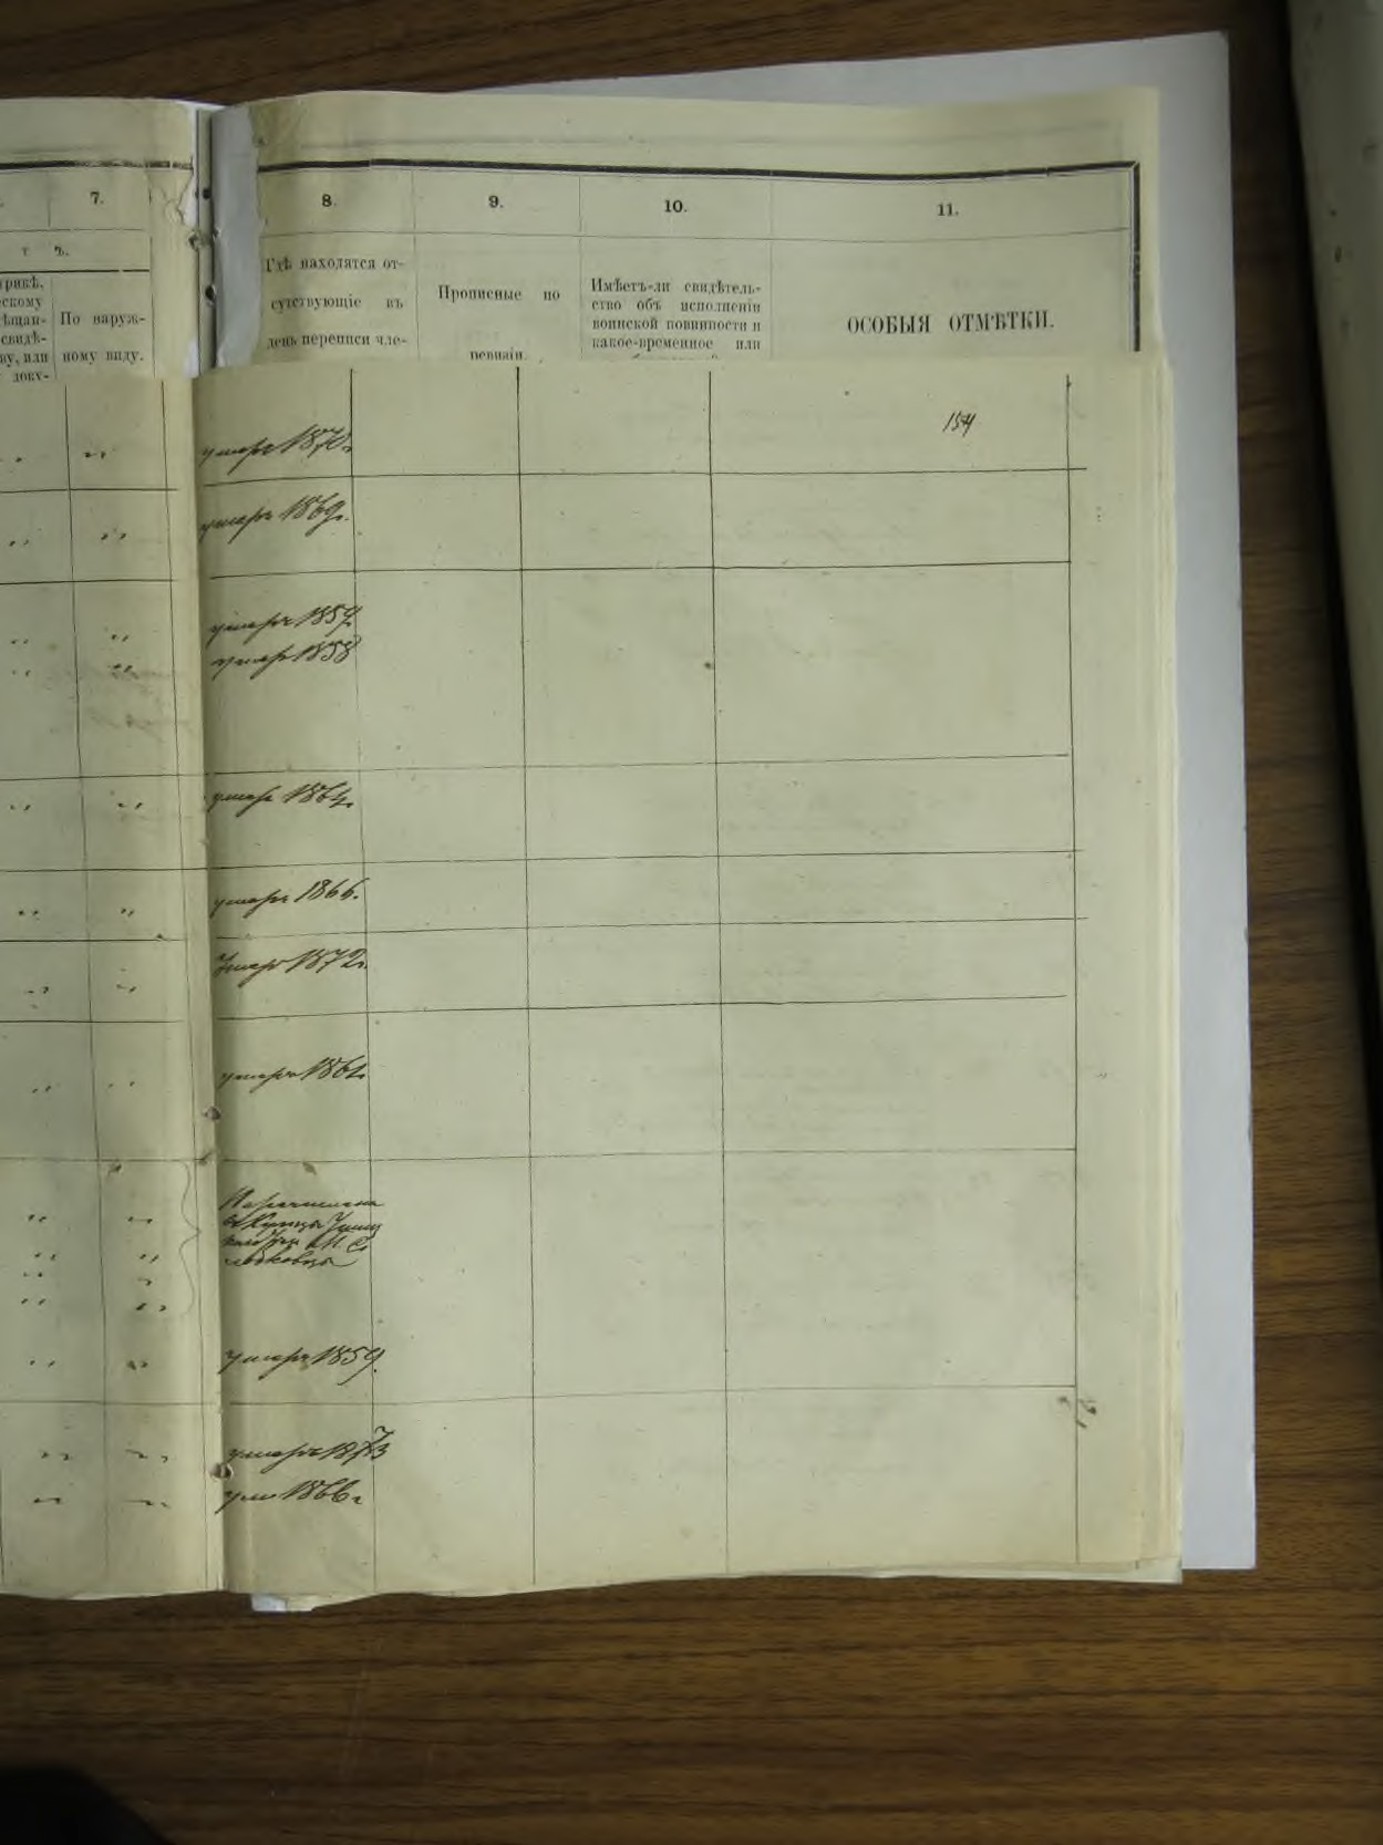 7.
8.
9.
10.
11.
т ъ.
По наруж-
ному виду.
Гдѣ находятся от-
сутствующіе въ
день переписи чле-
Прописные по
ревизіи.
Имѣетъ-ли свидѣтель-
ство объ исполненіи
воинской повинности и
какое-временное или
ОСОБЫЯ ОТМѢТКИ.
154
умеръ 1870г.
умеръ 1869г.
умеръ 1859
умеръ 1858
умеръ 1864г.
умеръ 1866.
Умеръ 1872г.
умеръ 1861г.
Перечислены
въ Купцы
умеръ 1859.
умеръ 1873
ум 1866г